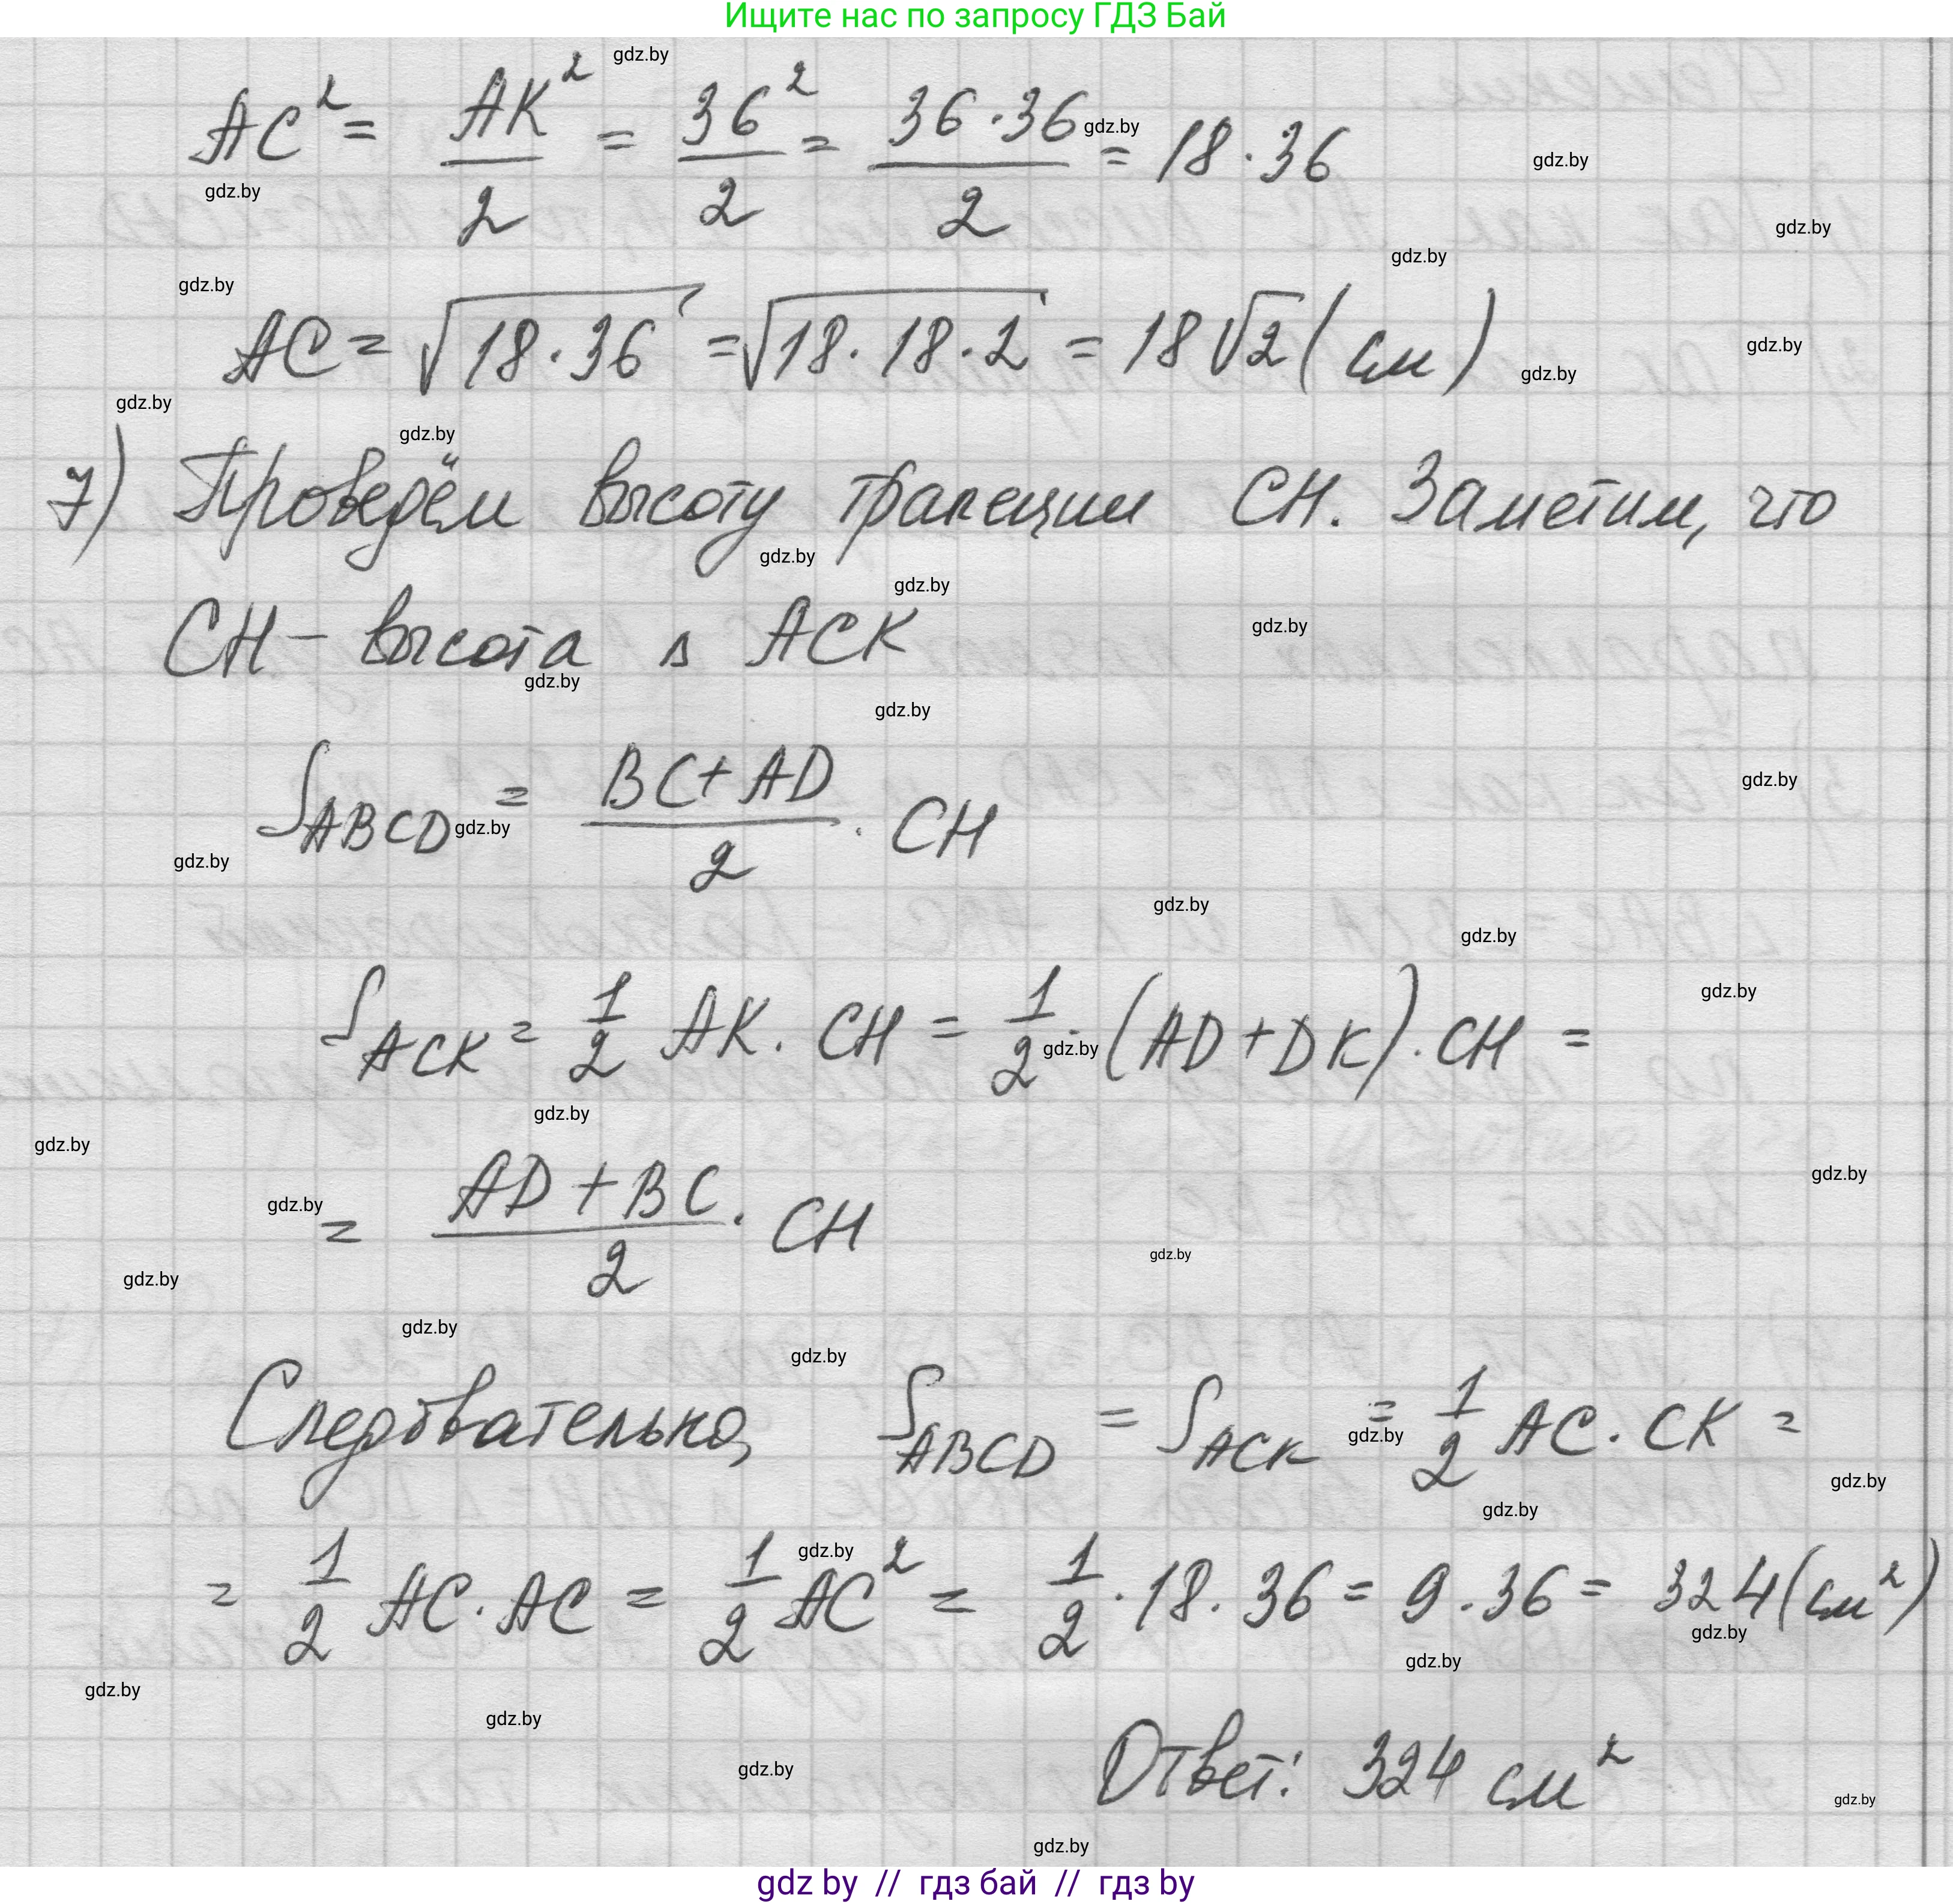 Ищите нас по запросу ГДЗ Бай
AC² = AK²/2 = 36²/2 = 36·36/2 = 18·36
AC = √(18·36) = √(18·18·2) = 18√2 (см)
7) Проведём высоту трапеции CH. Заметим, что
CH – высота в ACK
S_ABCD = (BC+AD)/2 · CH
S_ACK = 1/2 AK · CH = 1/2 · (AD+DK) · CH =
= (AD+BC)/2 · CH
Следовательно, S_ABCD = S_ACK = 1/2 AC · CK =
= 1/2 AC · AC = 1/2 AC² = 1/2 · 18 · 36 = 9 · 36 = 324 (см²)
Ответ: 324 см²
gdz by // гдз бай // гдз by